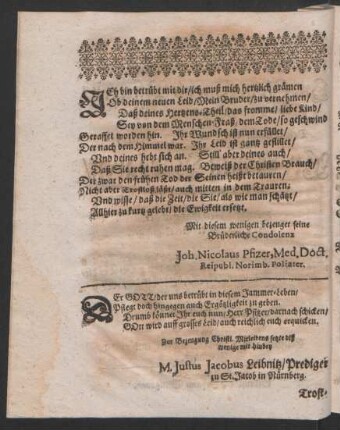 ICh bin betrübt mit dir/ich muß mich hertzlich grämen
Ob deinem neuen Leid/Mein Bruder/zu vernehmen/
Daß deines Hertzens-Theil/das fromme/ liebe Kind/
Sey von dem Menschen-Fraß/dem Tode/ so geschwind
Geraffet worden hin. Ihr Wundsch ist nun erfüllet/
Der nach dem Himmel war. Ihr Leid ist gantz gestillet/
Und deines hebt sich an. Still aber deines auch/
Daß Sie recht ruhen mag. Beweiß der Christen Brauch/
Der zwar den frühen Tod der Seinen heist betauren/
Nicht aber Trostloß lässt/auch mitten in dem Trauren.
Und wisse/ daß die Zeit/die Sie/als wie man schätzt/
Allhier zu kurtz gelebt/ die Ewigkeit ersetzt.
Mit diesem wenigen bezeuget seine
Brüderliche Condolenz
Joh. Nicolaus Pfizer, Med. Doct.
Reipubl. Norimb. Poliater.
DEr GOTT/der uns betrübt in diesem Jammer-Leben/
Pflegt doch hingegen auch Ergötzligkeit zu geben.
Drumb könnet Ihr euch nun/Herr Pfitzer/darnach schicken/
GOtt wird auff grosses Leid/auch reichlich euch erquicken.
Zur Bezeugung Christl. Mitleidens setzte diß
wenige mit hinbey
M. Justus Jacobus Leibnitz/Prediger
zu St. Jacob in Nürnberg.
Trost-